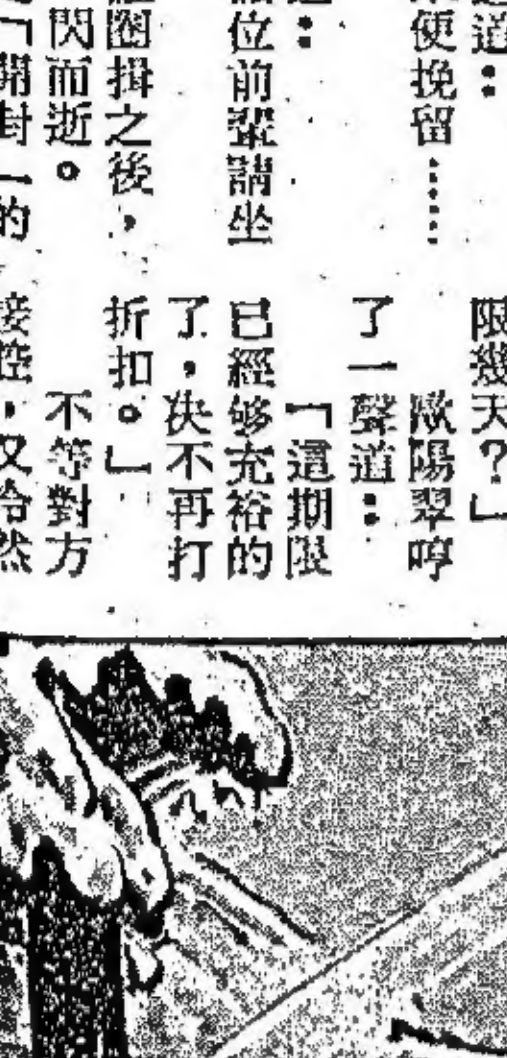 道：
便挽留……
位前輩請坐
：
圈揖之後，
閃而逝。
「開封一的
限幾天？」
歐陽翠哼
了一聲道：
「這期限
已經够充裕的
了，決不再打
折扣。」
不等對方
接腔，又冷然